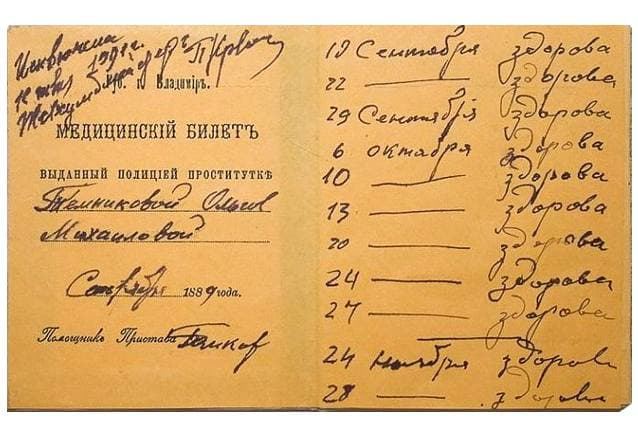 Исключена
Губ. г. Владиміръ.
МЕДИЦИНСКІЙ БИЛЕТЪ
ВЫДАННЫЙ ПОЛИЦІЕЙ ПРОСТИТУТКѢ
Темниковой
Михаиловой
Сентября 1889 года.
Помощникъ Пристава
19 Сентября здорова
22 — здорова
29 Сентября здорова
6 октября здорова
10 — здорова
13 — здорова
20 — здорова
24 — здорова
27 — здорова
24 ноября здорова
28 — здорова